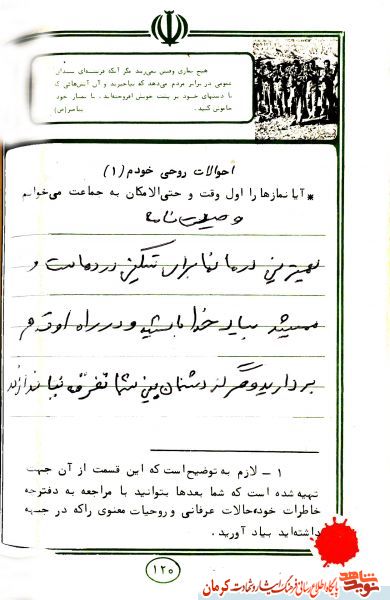 هیچ نمازی وقتش نمی‌رسد مگر آنکه فرشته‌ای ندا در
عمومی در برابر مردم می‌دهد که بپاخیزید و آن آتش‌هائی که
با دستهای خود بر پشت خویش افروخته‌اید، با نماز خود
خاموش کنید. پیامبر(ص)
احوالات روحی خودم (۱)
* آیا نمازها را اول وقت و حتی‌الامکان به جماعت می‌خوانم
وصیت نامه
بهترین درمانها برای تسکین دردهاست و
همیشه بیاد خدا باشید و در راه او قدم
بردارید و هرگز دشمنان بین شما تفرقه نیاندازند
۱ - لازم به توضیح است که این قسمت از آن جهت
تهیه شده است که شما بعدها بتوانید با مراجعه به دفترچه
خاطرات خود، حالات عرفانی و روحیات معنوی را که در جبهه
داشته‌اید بیاد آورید.
۱۲۰
نوید شاهد
پایگاه اطلاع رسانی فرهنگ ایثار و شهادت کرمان